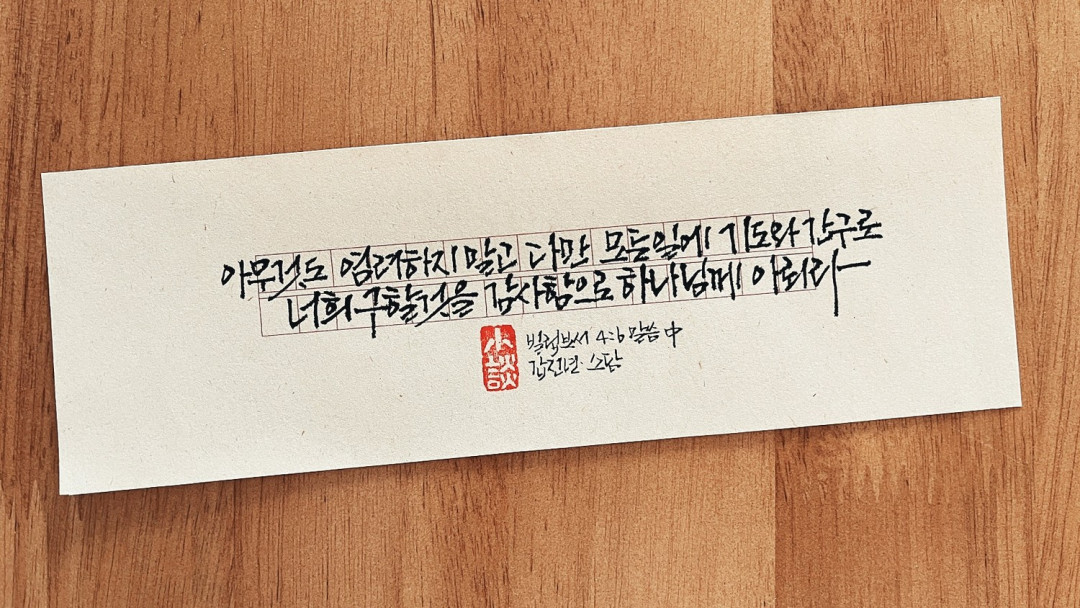 아무것도 염려하지 말고 다만 모든일에 기도와 간구로
너희 구할것을 감사함으로 하나님께 아뢰라
小談
빌립보서 4:6 말씀 中
갑진년·소담